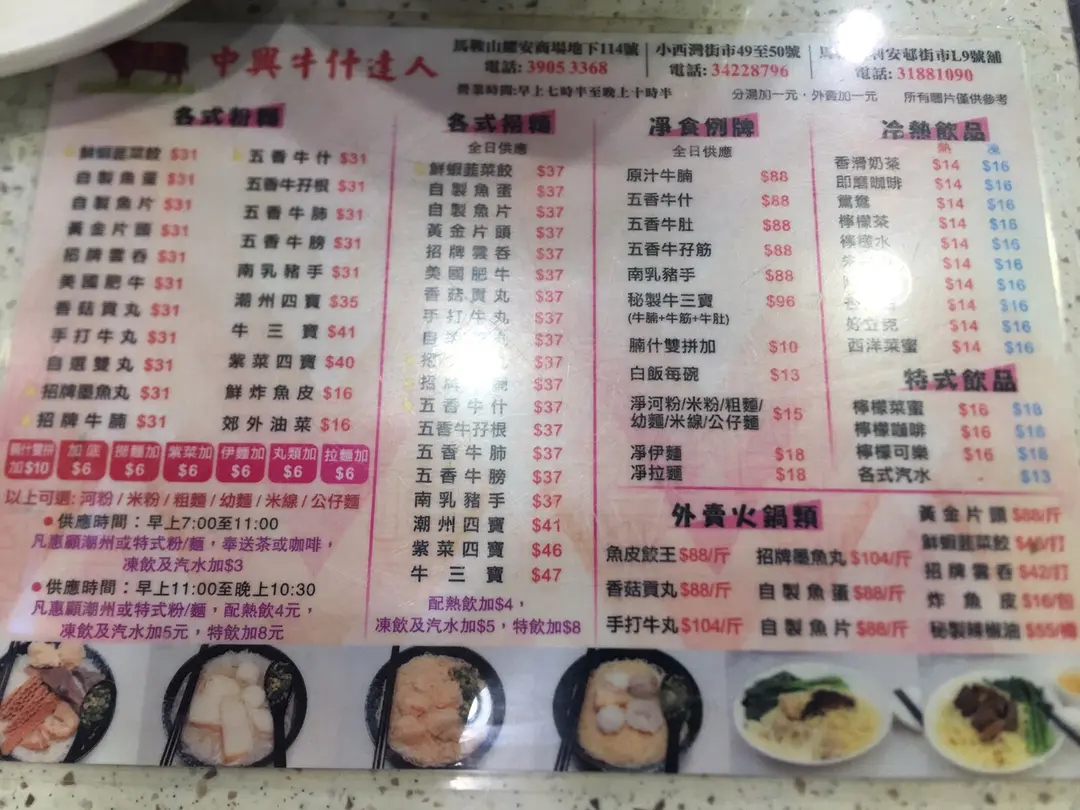 中興牛什達人
馬鞍山耀安商場地下114號
電話: 3905 3368
小西灣街市49至50號
電話: 34228796
利安邨街市L9號舖
電話: 31881090
營業時間:早上七時半至晚上十時半
分湯加一元，外賣加一元
所有圖片僅供參考
各式粉麵
鮮蝦韮菜餃 $31
自製魚蛋 $31
自製魚片 $31
黃金片頭 $31
招牌雲吞 $31
美國肥牛 $31
香菇貢丸 $31
手打牛丸 $31
自選雙丸 $31
招牌墨魚丸 $31
招牌牛腩 $31
五香牛什 $31
五香牛孖根 $31
五香牛肺 $31
五香牛膀 $31
南乳豬手 $31
潮州四寶 $35
牛三寶 $41
紫菜四寶 $40
鮮炸魚皮 $16
郊外油菜 $16
加$10
加底 $6
撈麵加 $6
紫菜加 $6
伊麵加 $6
丸類加 $6
拉麵加 $6
以上可選: 河粉 / 米粉 / 粗麵 / 幼麵 / 米線 / 公仔麵
●供應時間：早上7:00至11:00
凡惠顧潮州或特式粉/麵，奉送茶或咖啡，
凍飲及汽水加$3
●供應時間：早上11:00至晚上10:30
凡惠顧潮州或特式粉/麵，配熱飲4元，
凍飲及汽水加5元，特飲加8元
各式撈麵
全日供應
鮮蝦韮菜餃 $37
自製魚蛋 $37
自製魚片 $37
黃金片頭 $37
招牌雲吞 $37
美國肥牛 $37
香菇貢丸 $37
手打牛丸 $37
$37
$37
招牌 $37
五香牛什 $37
五香牛孖根 $37
五香牛肺 $37
五香牛膀 $37
南乳豬手 $37
潮州四寶 $41
紫菜四寶 $46
牛三寶 $47
配熱飲加$4，
凍飲及汽水加$5，特飲加$8
淨食例牌
全日供應
原汁牛腩 $88
五香牛什 $88
五香牛肚 $88
五香牛孖筋 $88
南乳豬手 $88
秘製牛三寶 $96
(牛腩+牛筋+牛肚)
腩什雙拼加 $10
白飯每碗 $13
淨河粉/米粉/粗麵/
幼麵/米線/公仔麵 $15
淨伊麵 $18
淨拉麵 $18
冷熱飲品
熱 凍
香滑奶茶 $14 $16
即磨咖啡 $14 $16
鴛鴦 $14 $16
檸檬茶 $14 $16
檸檬水 $14 $16
$14 $16
$14 $16
$14 $16
好立克 $14 $16
西洋菜蜜 $14 $16
特式飲品
檸檬菜蜜 $16 $18
檸檬咖啡 $16 $18
檸檬可樂 $16 $18
各式汽水 - $13
外賣火鍋類
魚皮餃王 $88/斤
香菇貢丸 $88/斤
手打牛丸 $104/斤
招牌墨魚丸 $104/斤
自製魚蛋 $88/斤
自製魚片 $88/斤
黃金片頭 $88/斤
鮮蝦韮菜餃
招牌雲吞 $42/打
炸魚皮 $16/包
秘製辣椒油 $55/樽